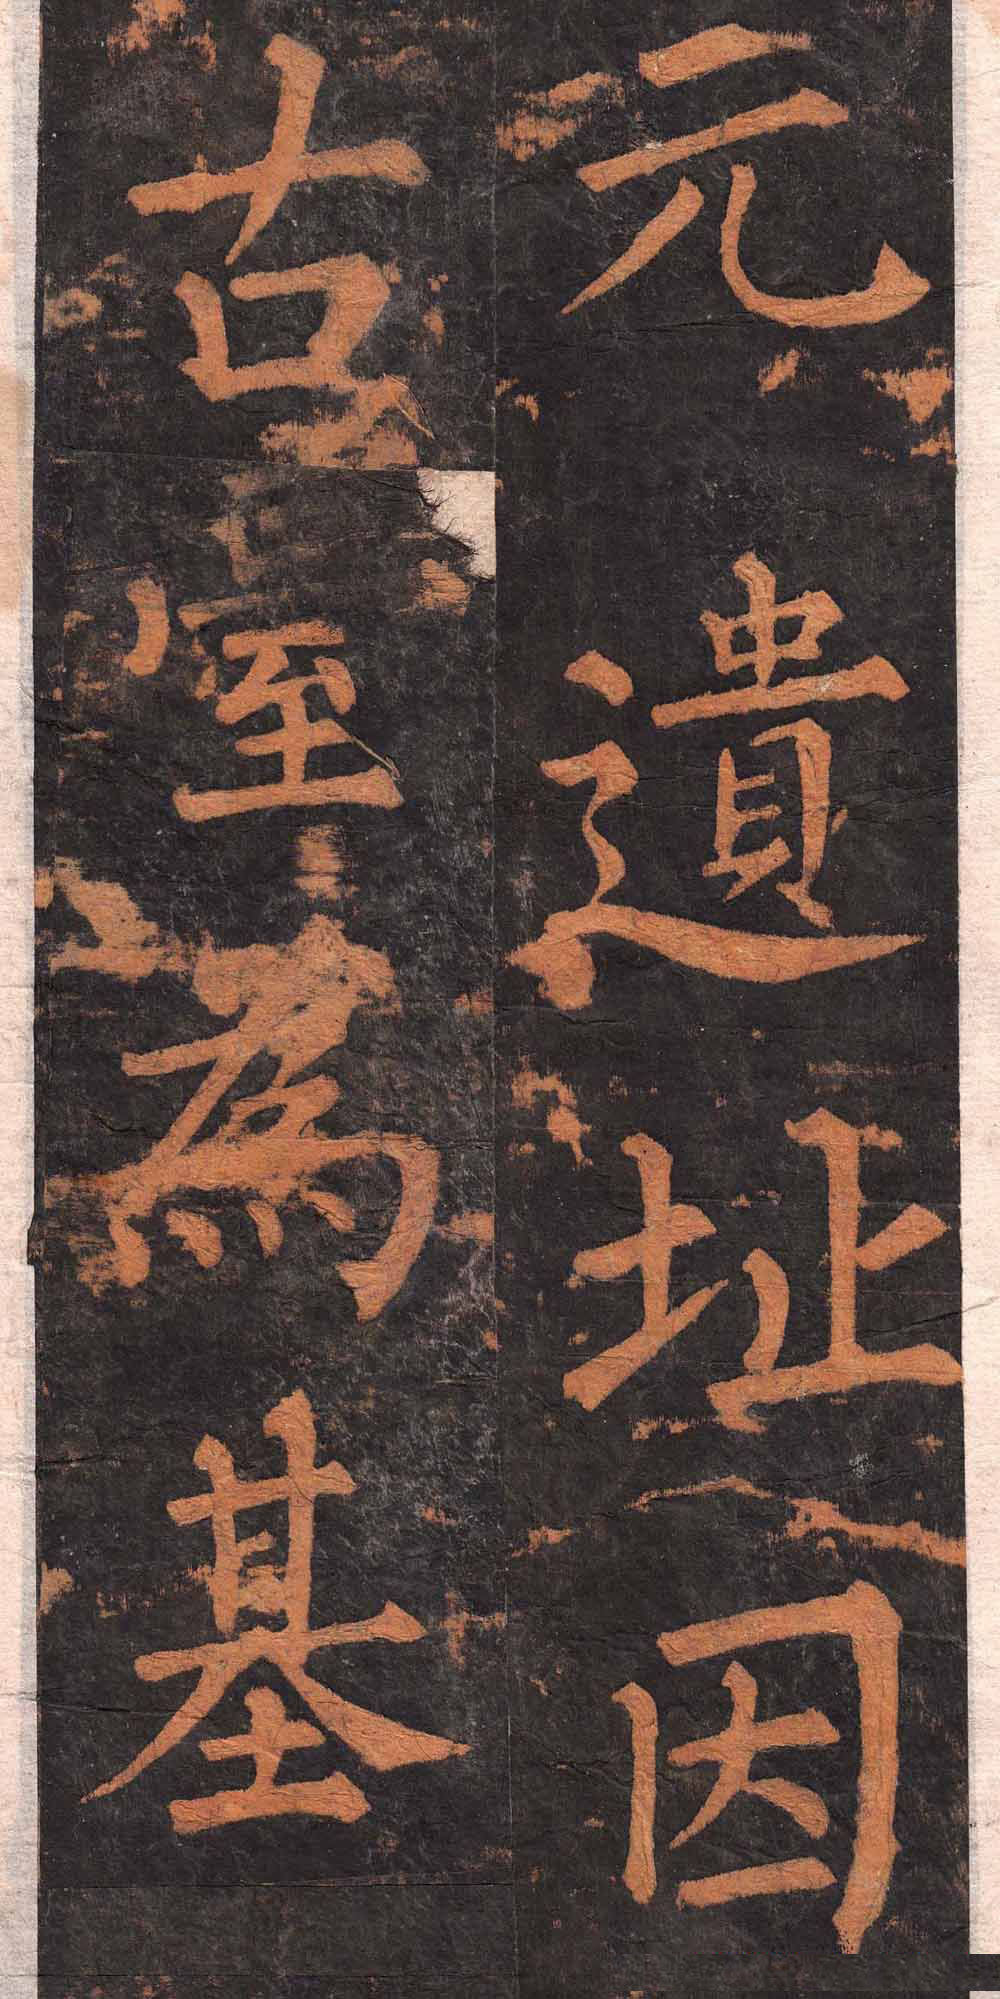 元遺址因
古室為基